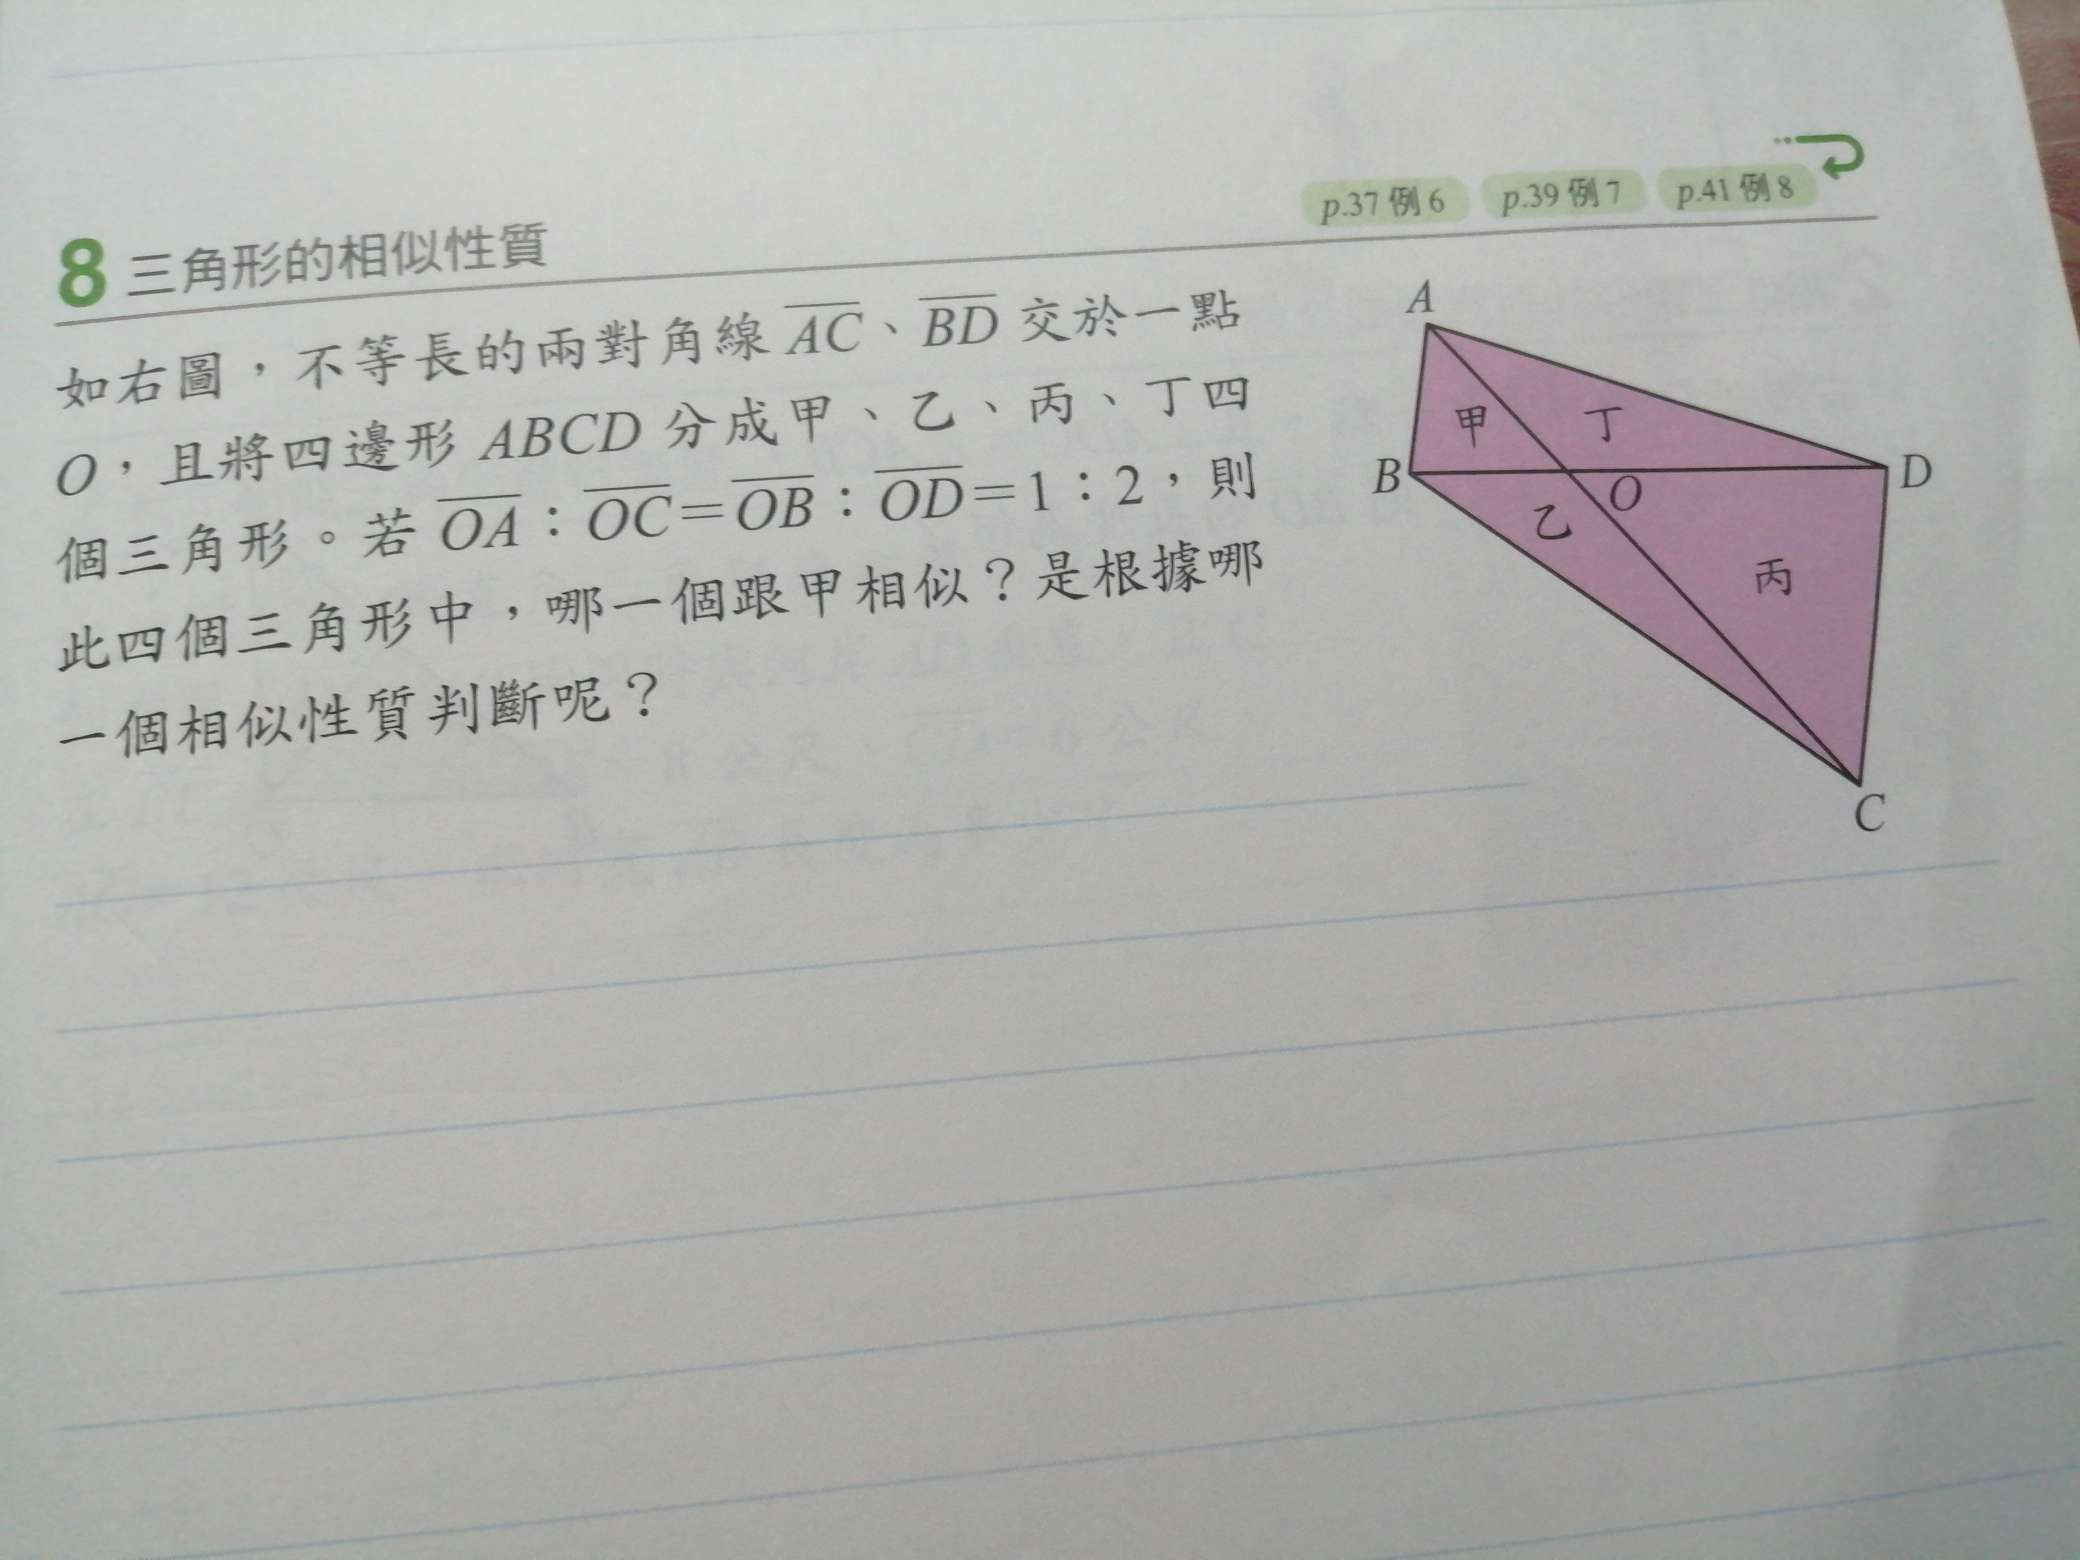 p.37 例 6 p.39 例 7 p.41 例 8
8 三角形的相似性質
如右圖，不等長的兩對角線 AC、BD 交於一點
O，且將四邊形 ABCD 分成甲、乙、丙、丁四
個三角形。若 OA：OC＝OB：OD＝1：2，則
此四個三角形中，哪一個跟甲相似？是根據哪
一個相似性質判斷呢？
A
甲 丁
B O D
乙
丙
C